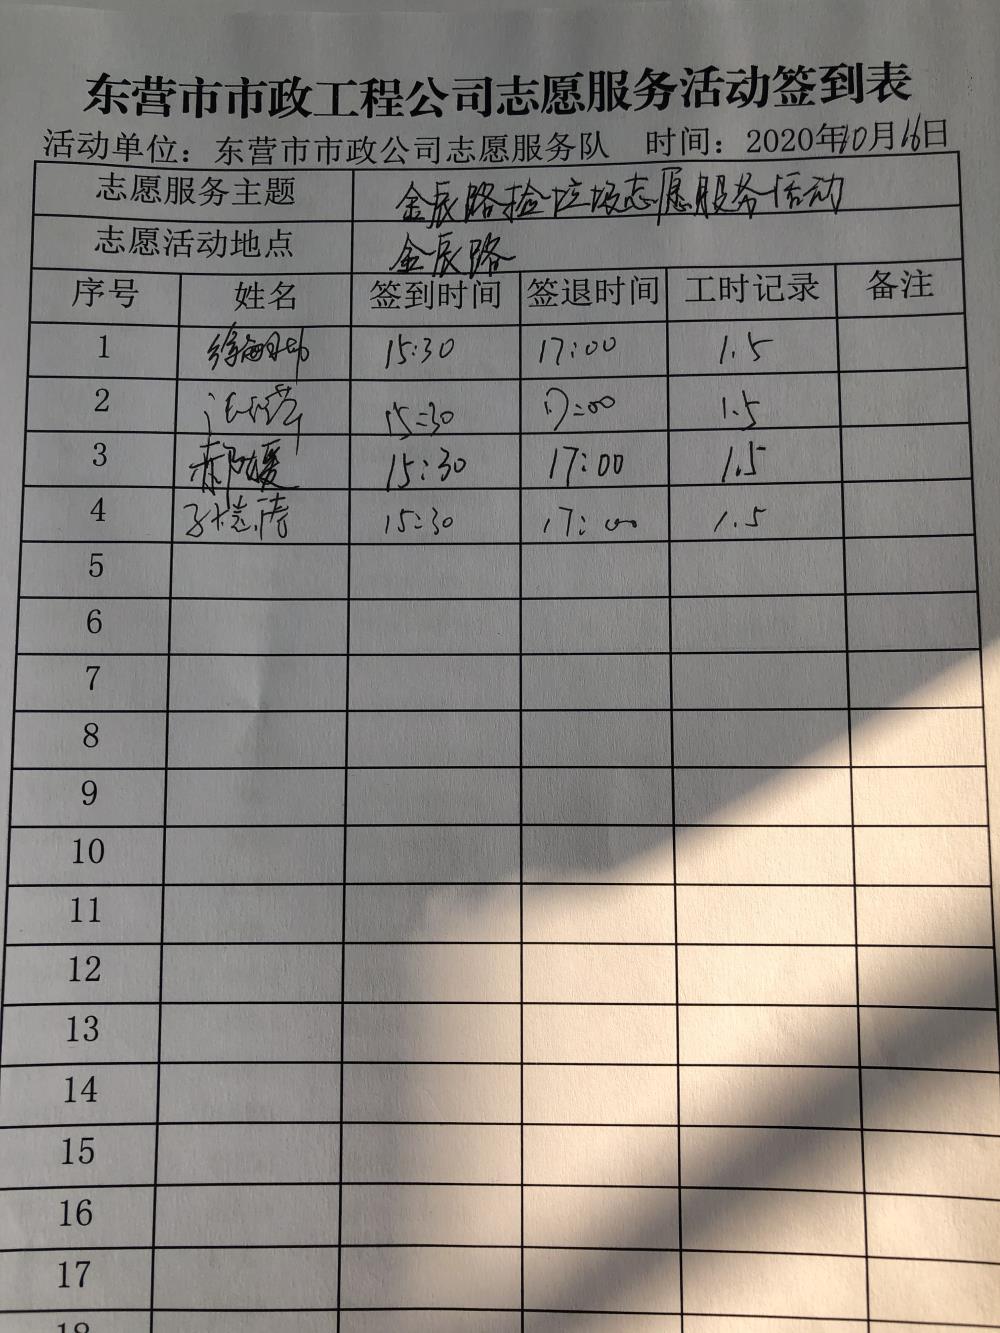 东营市市政工程公司志愿服务活动签到表
活动单位：东营市市政公司志愿服务队 时间：2020年10月16日
志愿服务主题 金辰路捡垃圾志愿服务活动
志愿活动地点 金辰路
序号 姓名 签到时间 签退时间 工时记录 备注
1 徐 15:30 17:00 1.5
2 15:30 17:00 1.5
3 郝媛 15:30 17:00 1.5
4 15:30 17:00 1.5
5
6
7
8
9
10
11
12
13
14
15
16
17
18